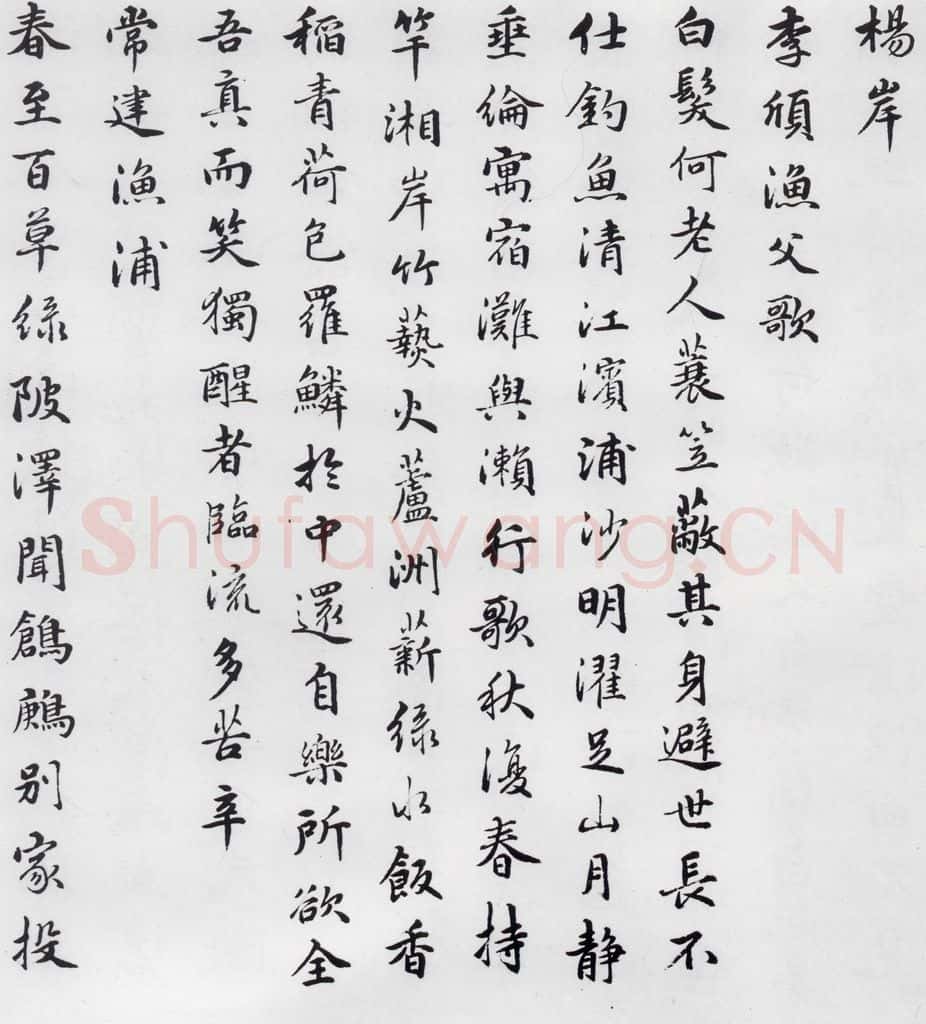 楊岸
李頎漁父歌
白髮何老人蓑笠蔽其身避世長不
仕釣魚清江濱浦沙明濯足山月靜
垂綸寓宿灘與瀨行歌秋復春持
竿湘岸竹爇火蘆洲薪綠水飯香
稻青荷包羅鱗於中還自樂所欲全
吾真而笑獨醒者臨流多苦辛
常建漁浦
春至百草綠陂澤聞鶬鶊別家投
Shufawang.CN